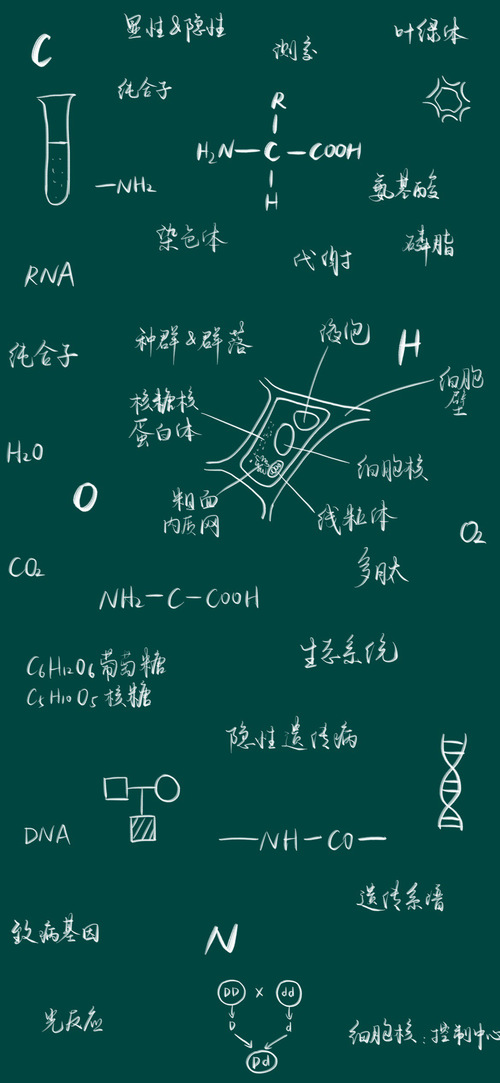 显性&隐性
测交
叶绿体
C
纯合子
R
H₂N—C—COOH
H
—NH₂
氨基酸
染色体
代谢
磷脂
RNA
纯合子
种群&群落
液泡
H
细胞
壁
核糖核
蛋白体
H₂O
细胞核
O
粗面
内质网
线粒体
O₂
CO₂
多肽
NH₂—C—COOH
生态系统
C₆H₁₂O₆葡萄糖
C₅H₁₀O₅核糖
隐性遗传病
DNA
—NH—CO—
遗传系谱
致病基因
N
DD × dd
D d
Dd
光反应
细胞核：控制中心